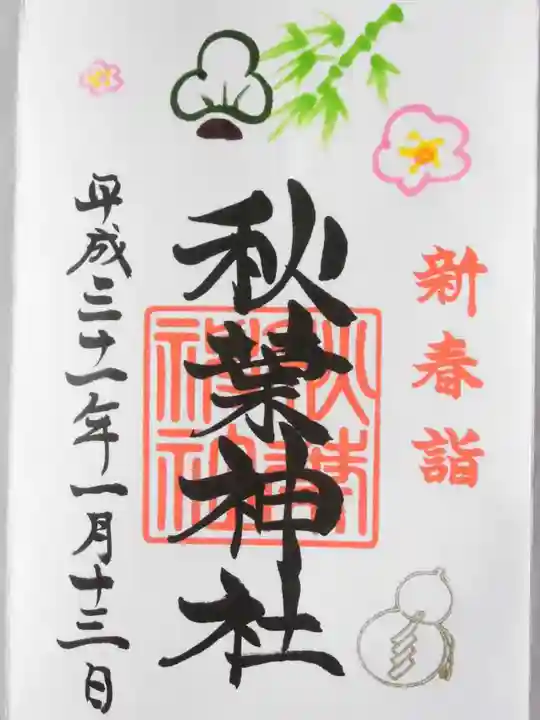 新春詣
秋葉神社
秋葉
神社
平成三十一年一月十三日